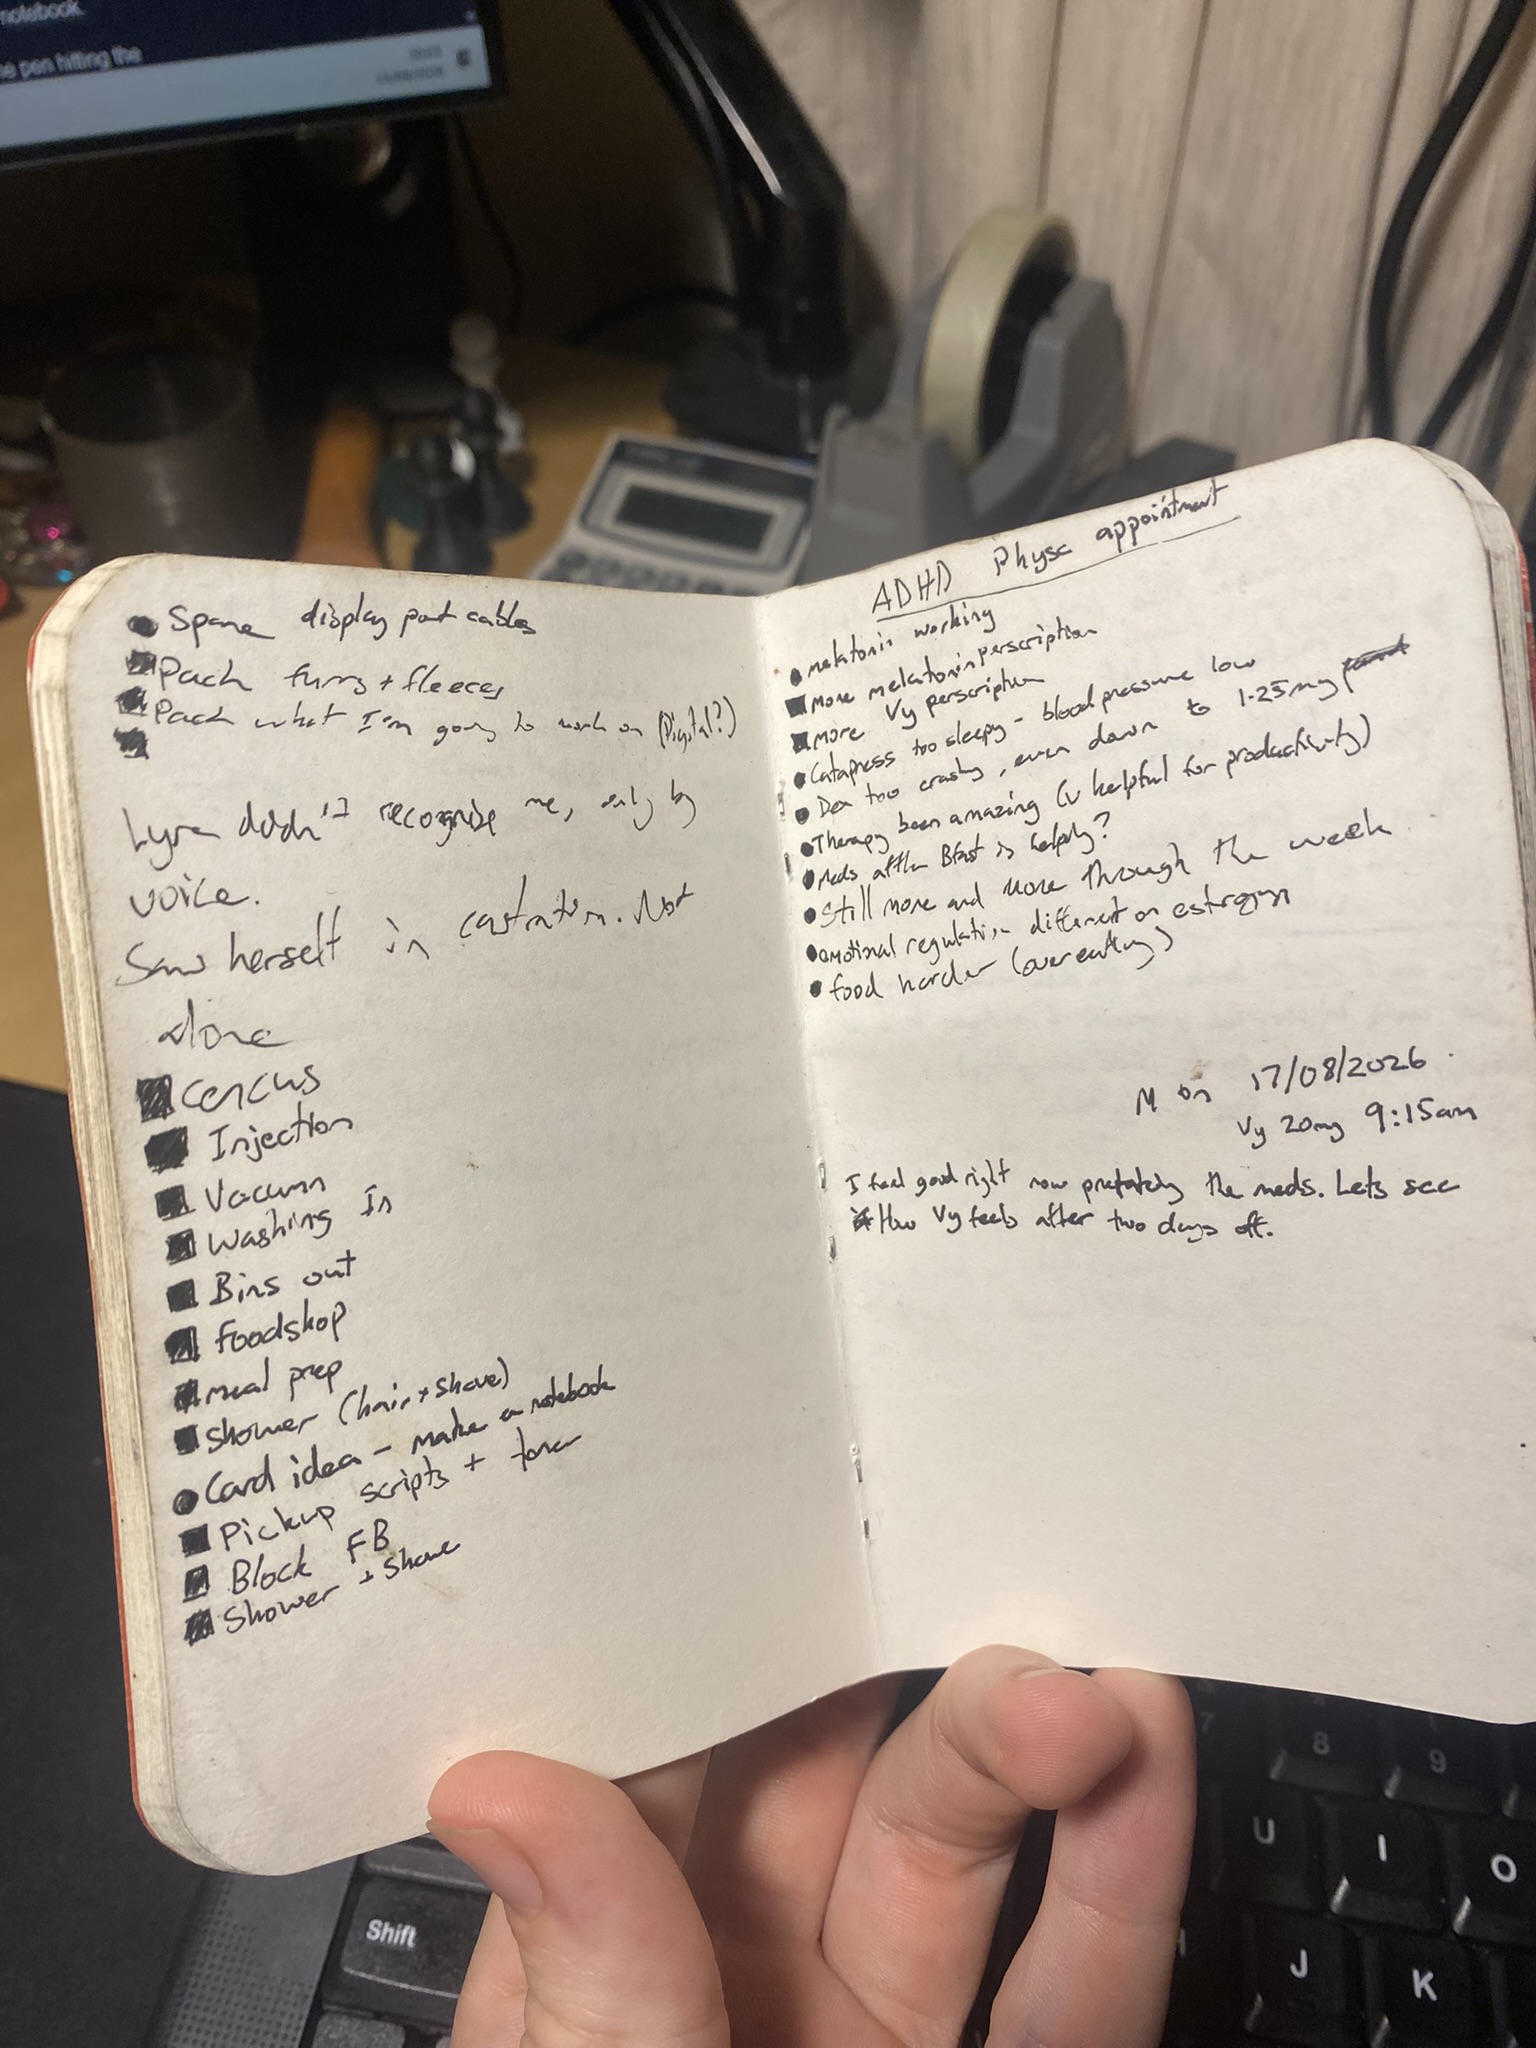 notebook.
pen hitting the
● Spare display port cables
■ Pack furrs + fleeces
■ Pack what I'm going to work on (Digital?)
■
Lyra didn't recognize me, only by
voice.
Saw herself in castration. Not
alone
■ Cencus
■ Injection
■ Vacumn
■ Washing In
■ Bins out
■ Foodshop
■ meal prep
■ Shower (hair + shave)
● Card idea - make a notebook
■ Pickup scripts + toner
■ Block FB
■ Shower + Shave
ADHD Physc appointment
● melatonin working
■ More melatonin perscription
■ More Vy perscription
● Catapress too sleepy - blood pressure low
● Dex too crashy, even down to 1.25mg
● Therapy been amazing (v helpful for productivity)
● Meds after Bfast is helpful?
● Still more and more through the week
● emotional regulation different on estrogen
● food harder (overeating)
Mon 17/08/2026
Vy 20mg 9:15am
I feel good right now the meds. Lets see
How Vy feels after two days off.
Shift
7
8
9
U
I
O
J
K